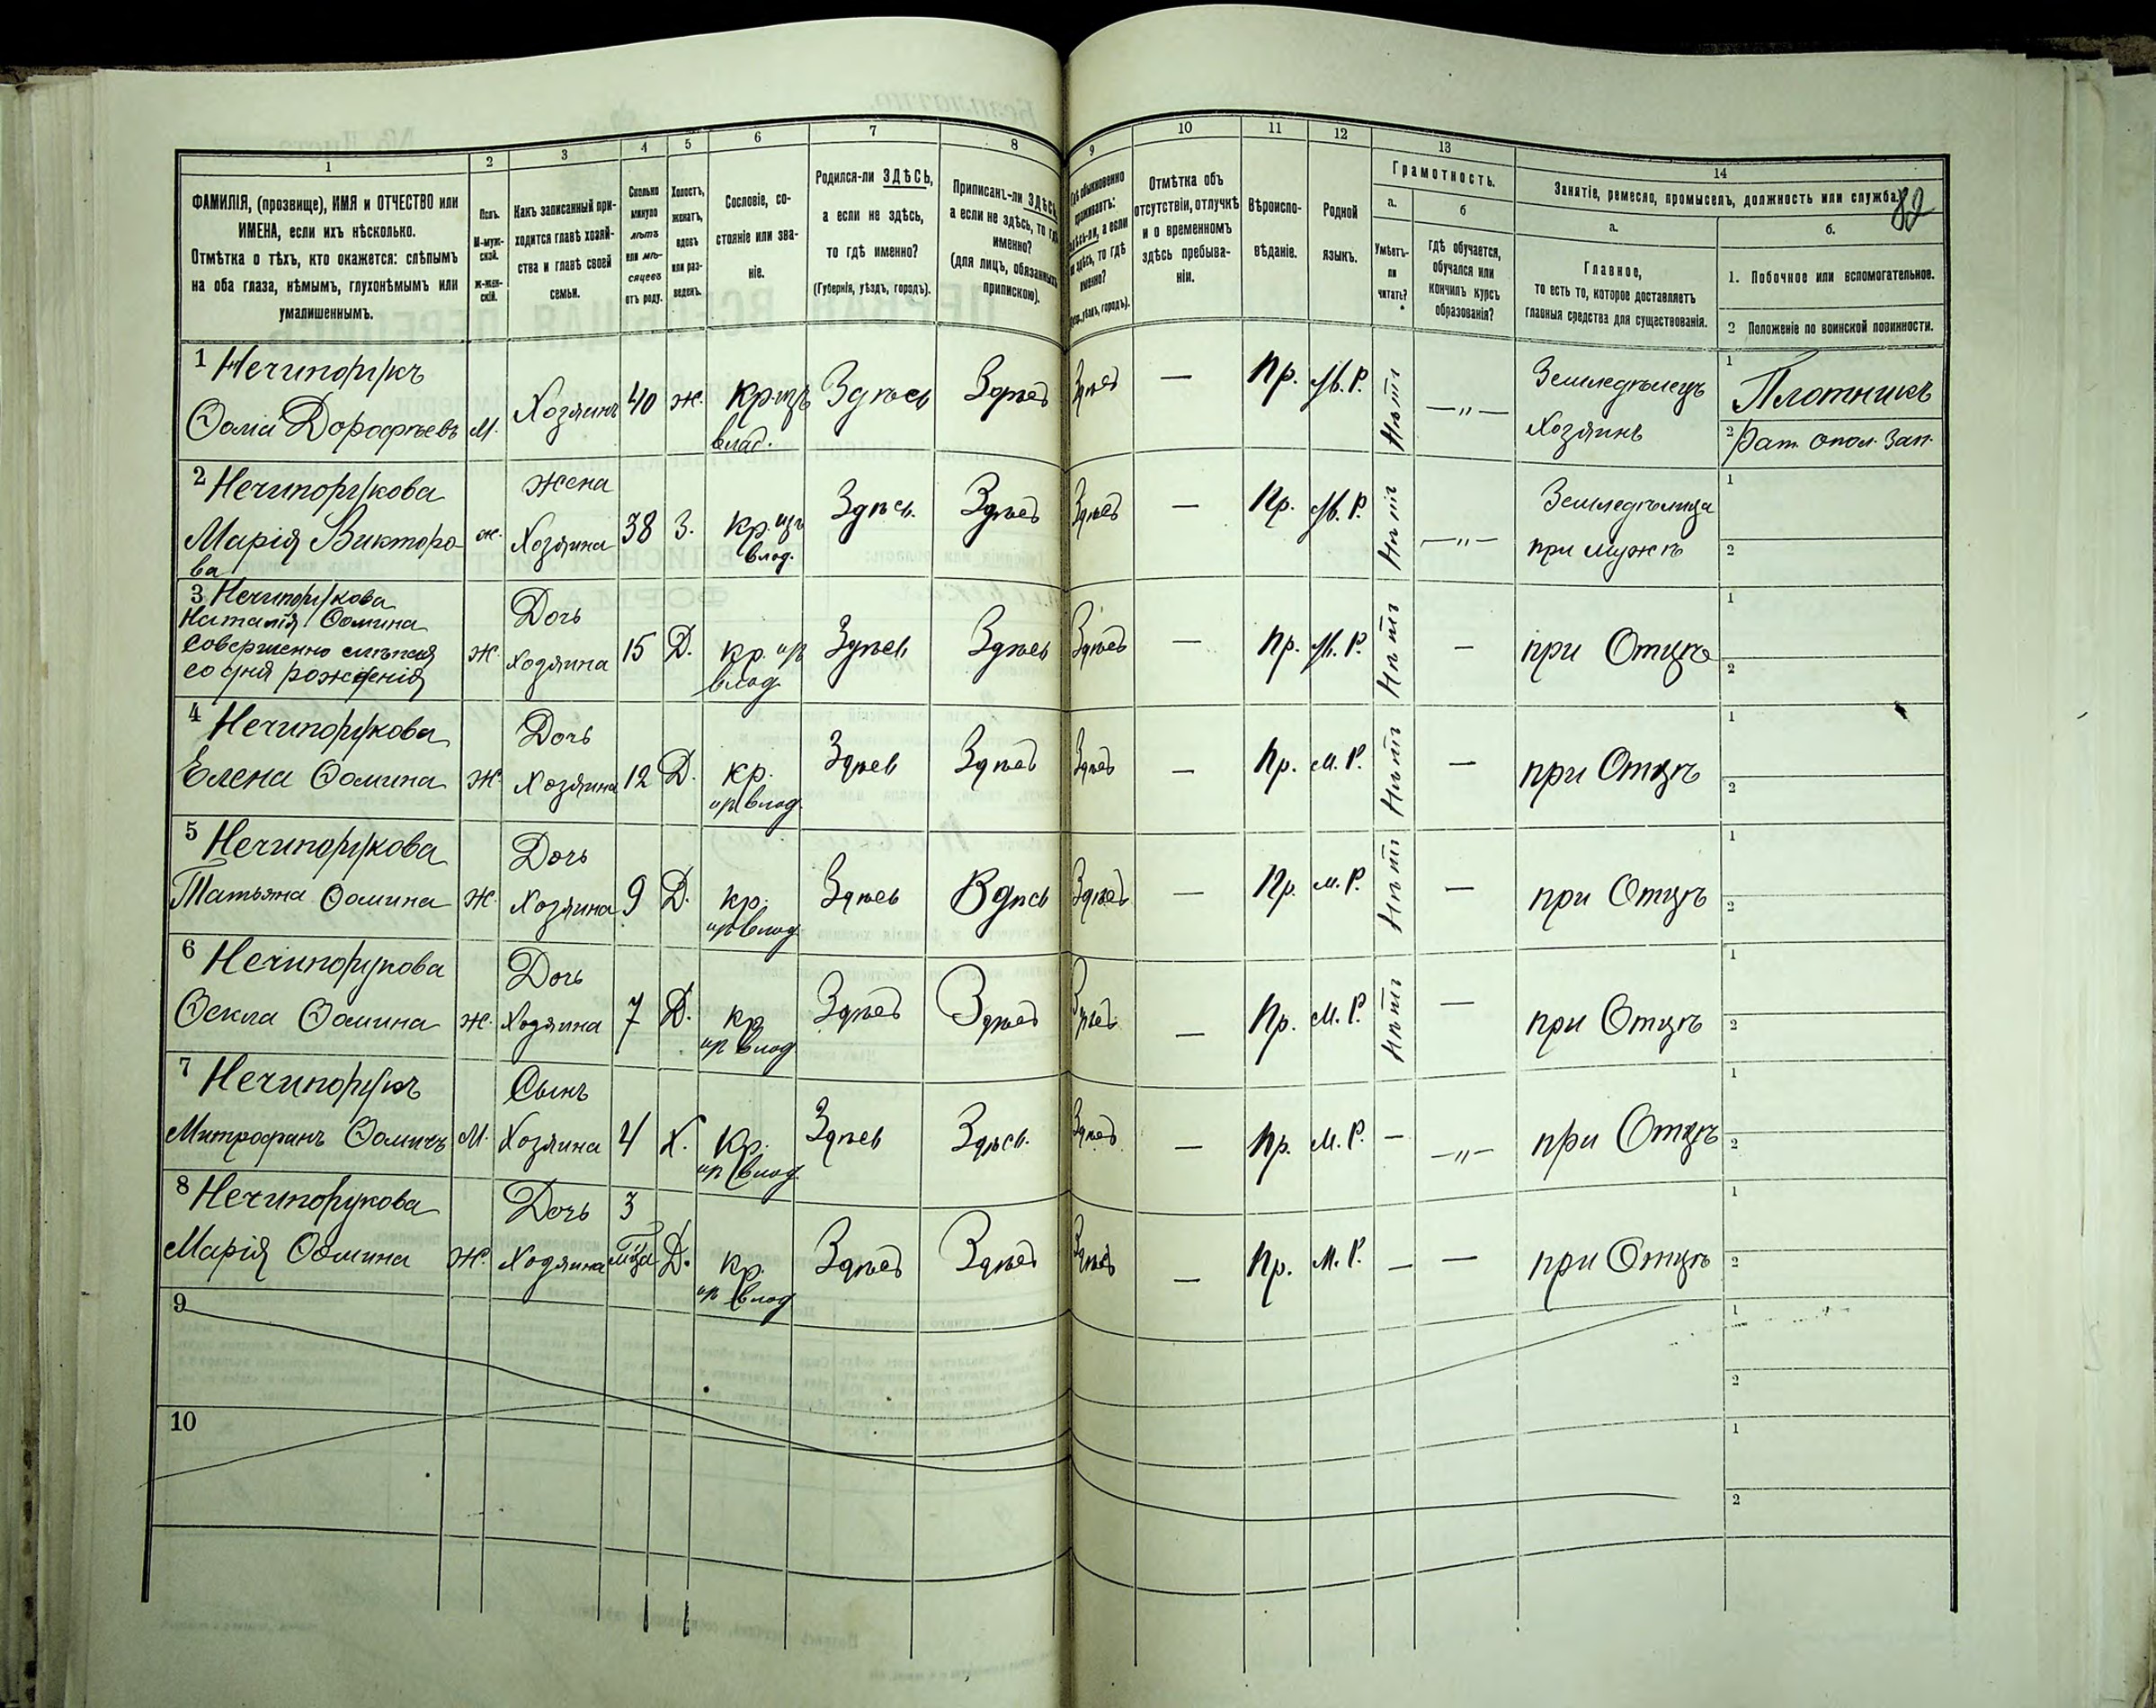 1
2
3
4
5
6
7
8
9
10
11
12
13
14
ФАМИЛІЯ, (прозвище), ИМЯ и ОТЧЕСТВО или
ИМЕНА, если ихъ нѣсколько.
Отмѣтка о тѣхъ, кто окажется: слѣпымъ
на оба глаза, нѣмымъ, глухонѣмымъ или
умалишеннымъ.
Полъ.
М-муж-
ской.
ж-жен-
скій.
Какъ записанный при-
ходится главѣ хозяй-
ства и главѣ своей
семьи.
Сколько
минуло
лѣтъ
или мѣ-
сяцевъ
отъ роду.
Холостъ,
женатъ,
вдовъ
или раз-
веденъ.
Сословіе, со-
стояніе или зва-
ніе.
Родился-ли ЗДѢСЬ,
а если не здѣсь,
то гдѣ именно?
(Губернія, уѣздъ, городъ).
Приписанъ-ли ЗДѢСЬ,
а если не здѣсь, то гдѣ
именно?
(для лицъ, обязанныхъ
припискою).
Гдѣ обыкновенно
проживаетъ:
здѣсь-ли, а если
не здѣсь, то гдѣ
именно?
(Губ., уѣздъ, городъ).
Отмѣтка объ
отсутствіи, отлучкѣ
и о временномъ
здѣсь пребыва-
ніи.
Вѣроиспо-
вѣданіе.
Родной
языкъ.
Грамотность.
а.
б
Умѣетъ-
ли
читать?
гдѣ обучается,
обучался или
кончилъ курсъ
образованія?
Занятіе, ремесло, промыселъ, должность или служба.
82
а.
б.
Главное,
то есть то, которое доставляетъ
главныя средства для существованія.
1. Побочное или вспомогательное.
2 Положеніе по воинской повинности.
1 Нечипорукъ
Ѳома Дорофѣевъ М. Хозяинъ 40 ж. Кр. изъ влад. Здѣсь Здѣсь Здѣсь — Пр. М. Р. Нѣтъ —„— Земледѣлецъ Хозяинъ
1 Плотникъ
2 Рат. опол. зап.
2 Нечипорукова
Марія Викторо-
ва ж. Жена Хозяина 38 З. Кр. изъ влад. Здѣсь Здѣсь Здѣсь — Пр. М. Р. Нѣтъ —„— Земледѣлица при мужѣ
1
2
3 Нечипорукова
Наталія Ѳомина
совершенно слѣпая
со дня рожденія Ж. Дочь Хозяина 15 Д. Кр. изъ влад. Здѣсь Здѣсь Здѣсь — Пр. М. Р. Нѣтъ — при Отцѣ
1
2
4 Нечипорукова
Елена Ѳомина Ж. Дочь Хозяина 12 Д. Кр. из влад. Здѣсь Здѣсь Здѣсь — Пр. М. Р. Нѣтъ — при Отцѣ
1
2
5 Нечипорукова
Татьяна Ѳомина Ж. Дочь Хозяина 9 Д. Кр. из влад. Здѣсь Здѣсь Здѣсь — Пр. М. Р. Нѣтъ — при Отцѣ
1
2
6 Нечипорукова
Ѳекла Ѳомина Ж. Дочь Хозяина 7 Д. Кр. из влад. Здѣсь Здѣсь Здѣсь — Пр. М. Р. Нѣтъ — при Отцѣ
1
2
7 Нечипорукъ
Митрофанъ Ѳомичъ М. Сынъ Хозяина 4 Х. Кр. из влад. Здѣсь Здѣсь Здѣсь — Пр. М. Р. — —„— при Отцѣ
1
2
8 Нечипорукова
Марія Ѳомина Ж. Дочь Хозяина 3 м-ца Д. Кр. из влад. Здѣсь Здѣсь Здѣсь — Пр. М. Р. — — при Отцѣ
1
2
9
1
2
10
1
2